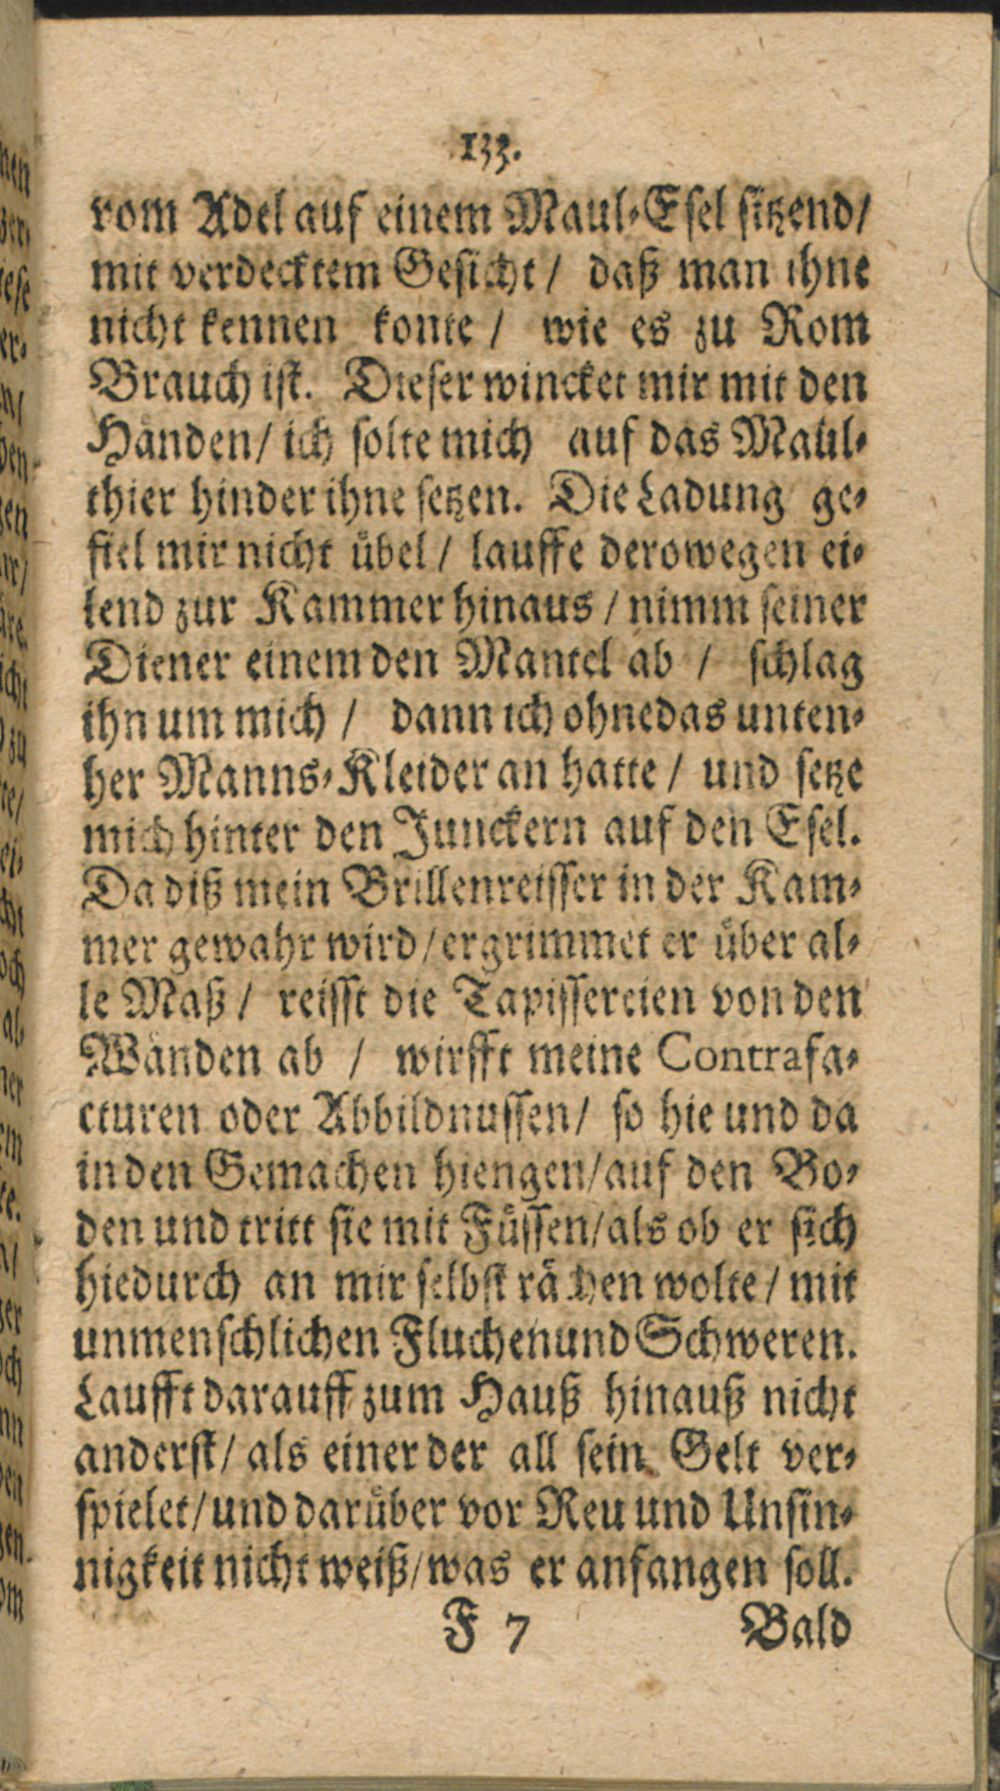 133.
vom Adel auf einem Maul-Esel sitzend/
mit verdecktem Gesicht / daß man ihne
nicht kennen konte / wie es zu Rom
Brauch ist. Dieser wincket mir mit den
Händen/ ich solte mich auf das Maul-
thier hinder ihne setzen. Die Ladung ge-
fiel mir nicht übel / lauffe derowegen ei-
lend zur Kammer hinaus / nimm seiner
Diener einem den Mantel ab / schlag
ihn um mich / dann ich ohnedas unten-
her Manns-Kleider an hatte / und setze
mich hinter den Junckern auf den Esel.
Da diß mein Brillenreisser in der Kam-
mer gewahr wird/ ergrimmet er über al-
le Maß / reisst die Tapissereien von den
Wänden ab / wirfft meine Contrafa-
cturen oder Abbildnussen/ so hie und da
in den Gemachen hiengen/ auf den Bo-
den und tritt sie mit Füssen/ als ob er sich
hiedurch an mir selbst rächen wolte / mit
unmenschlichen Fluchen und Schweren.
Laufft darauff zum Hauß hinauß nicht
anderst/ als einer der all sein Gelt ver-
spielet/ und darüber vor Reu und Unsin-
nigkeit nicht weiß/ was er anfangen soll.
F 7 Bald